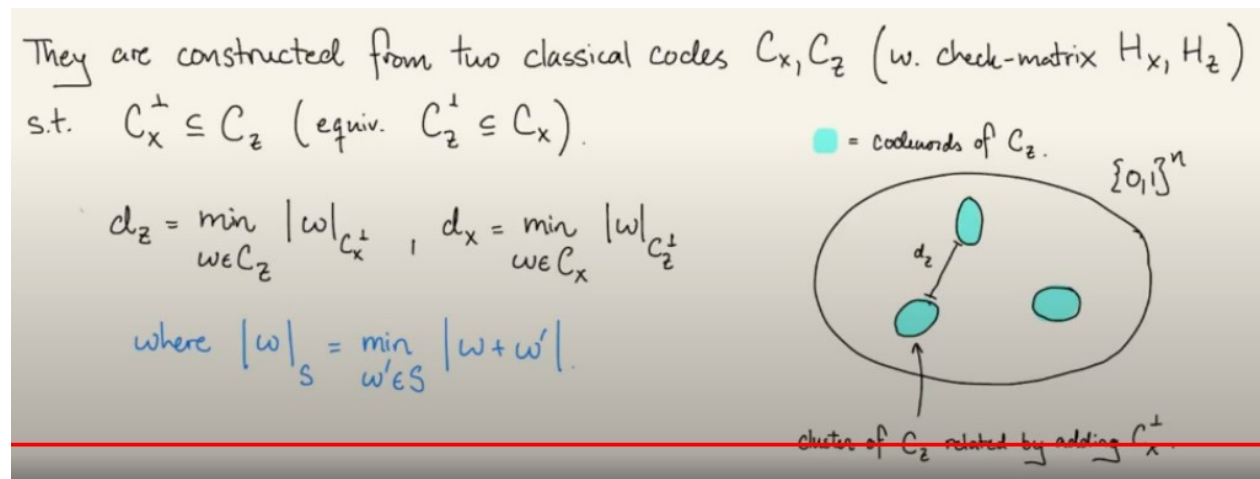 They are constructed from two classical codes Cₓ, C_z (w. check-matrix Hₓ, H_z)
s.t. Cₓ^⊥ ⊆ C_z (equiv. C_z^⊥ ⊆ Cₓ).
d_z = min_{w∈C_z} |w|_{Cₓ^⊥} , dₓ = min_{w∈Cₓ} |w|_{C_z^⊥}
where |w|_S = min_{w'∈S} |w+w'|.
= codewords of C_z.
{0,1}ⁿ
d_z
cluster of C_z related by adding Cₓ^⊥.